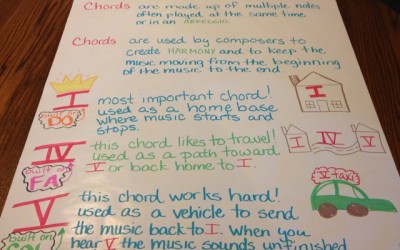 Chords are made up of multiple notes
often played at the same time
or in an ARPEGGIO.
Chords are used by composers to
create HARMONY and to keep the
music moving from the beginning
of the music to the end.
I most important chord!
built on DO
used as a home base
where music starts and
stops.
I
IV this chord likes to travel!
built on FA
used as a path toward
V or back home to I.
I IV V
V this chord works hard!
built on
used as a vehicle to send
the music back to I. When you
hear V the music sounds unfinished
V taxi